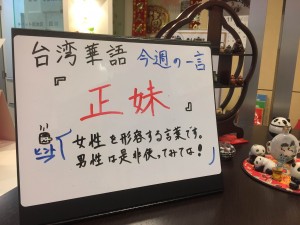 台湾華語 今週の一言
『正妹』
ヒント
女性を形容する言葉です。
男性は是非使ってみてな!